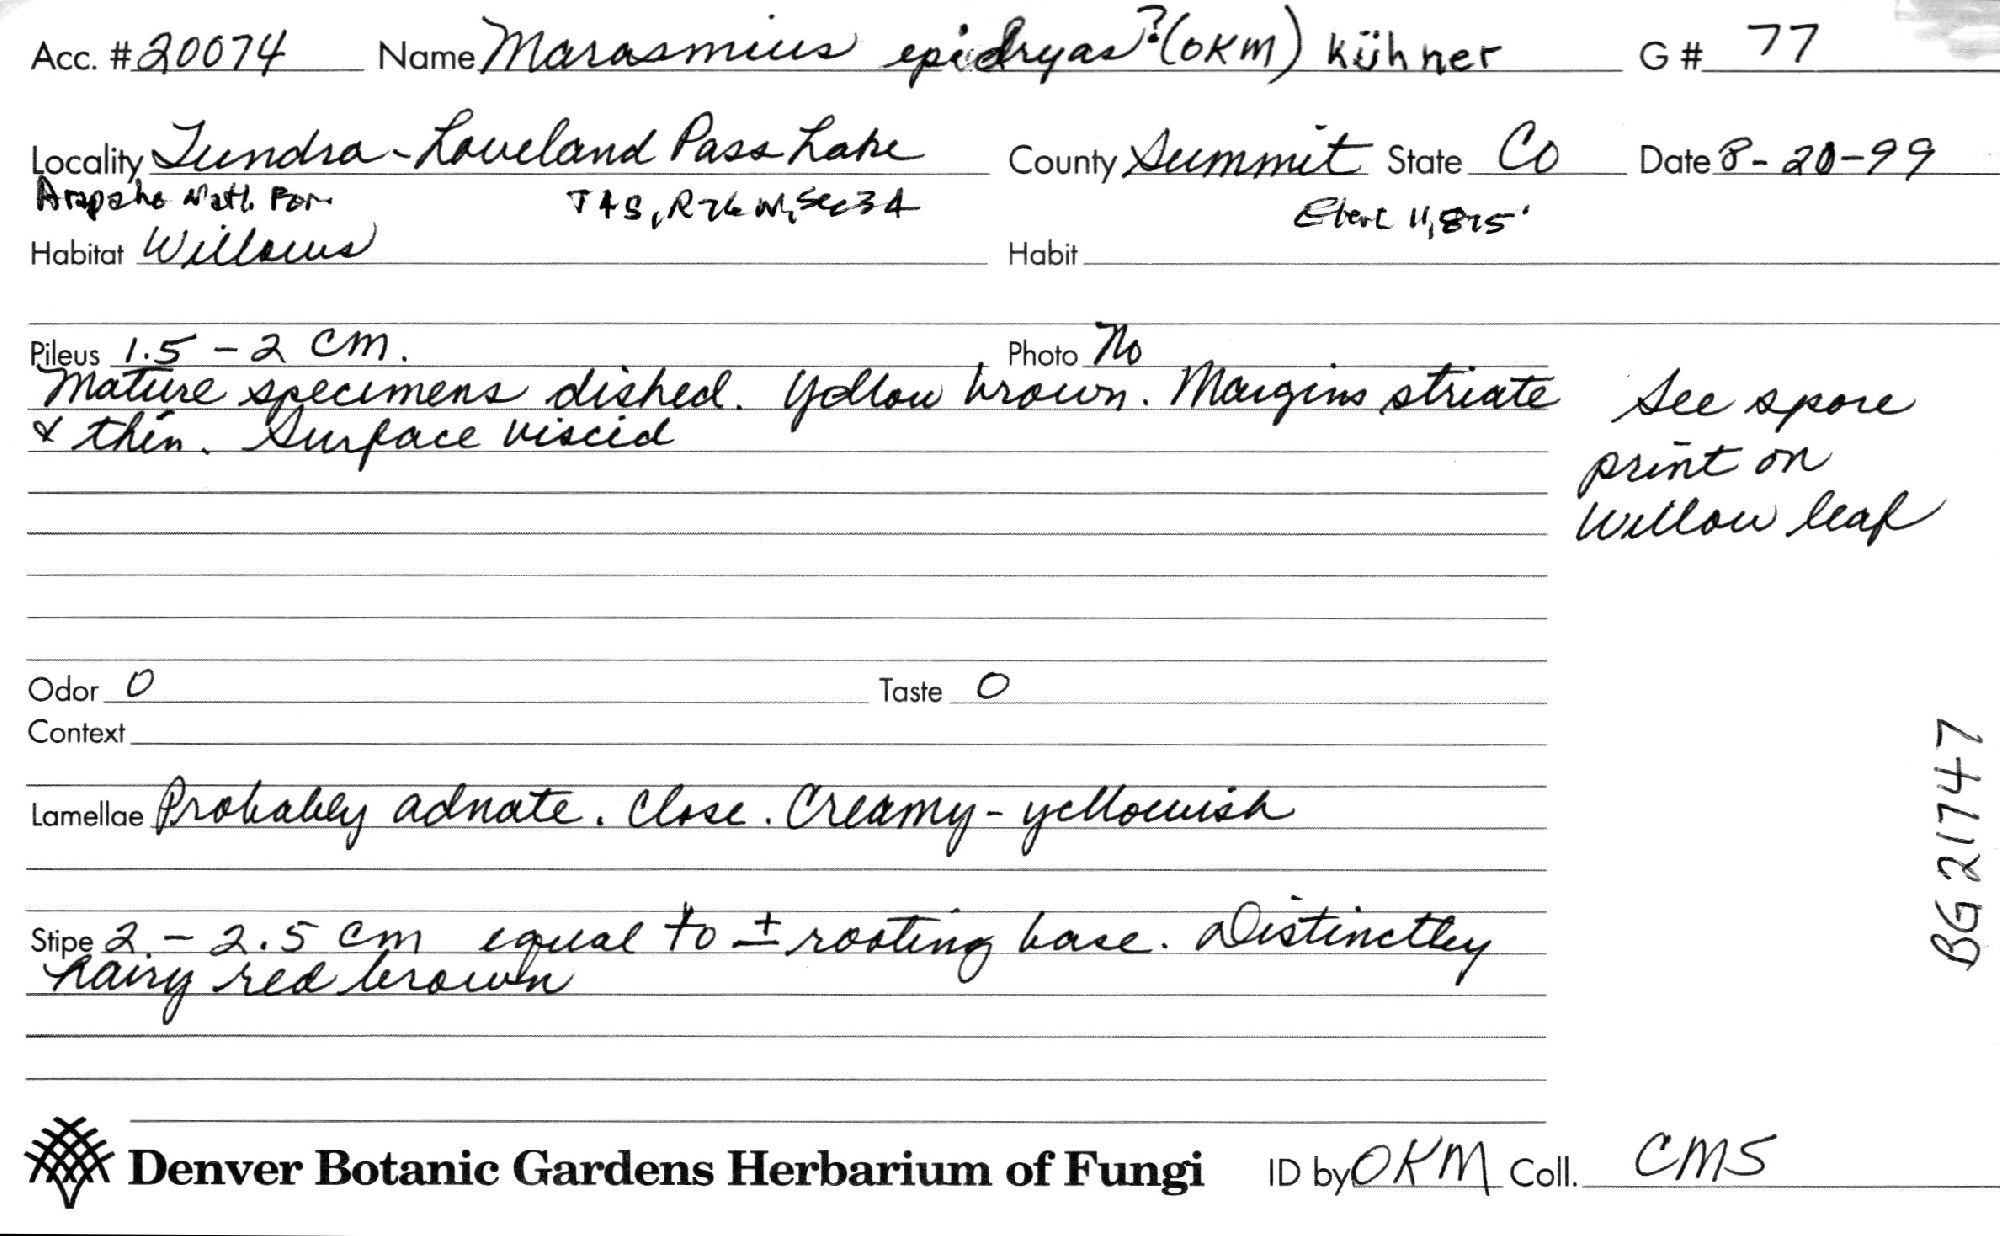 Acc. # 20074 Name Marasmius epidryas? (OKM) Kühner G # 77
Locality Tundra - Loveland Pass Lake County Summit State Co Date 8-20-99
Arapaho Natl. For. T4S, R76W, Sec 34 Elev. 11,875'
Habitat Willows Habit
Pileus 1.5 - 2 cm. Photo No
Mature specimens dished. Yellow brown. Margins striate
& thin. Surface viscid
See spore
print on
Willow leaf
Odor 0 Taste 0
Context
Lamellae Probabley adnate. Close. Creamy - yellowish
Stipe 2 - 2.5 cm equal to ± rooting base. Distinctley
hairy red brown
BG21747
Denver Botanic Gardens Herbarium of Fungi ID by OKM Coll. CMS